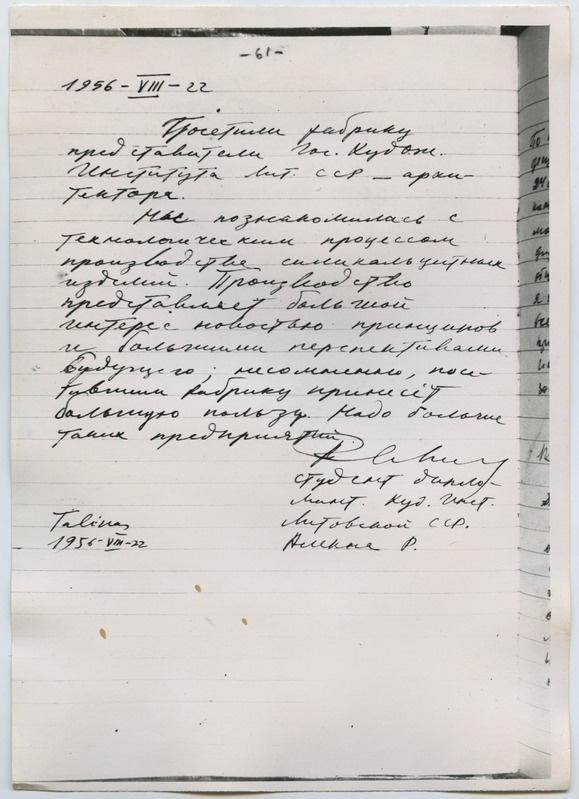 -61-
1956-VIII-22
Посетили фабрику
представители Гос. Худож.
Института Лит. ССР – архи-
тектора.
познакомилась с
технологическим процессом
производстве силикальцитных
изделий. Производство
представляет большой
интерес новостью принципов
и большими перспективами
будущего; несомненно, посе-
тившим фабрику принесёт
большую пользу. Надо больше
таких предприятий.
студент дипло-
мант Худ. Инст.
Литовской ССР.
Р.
Talinas
1956-VIII-22